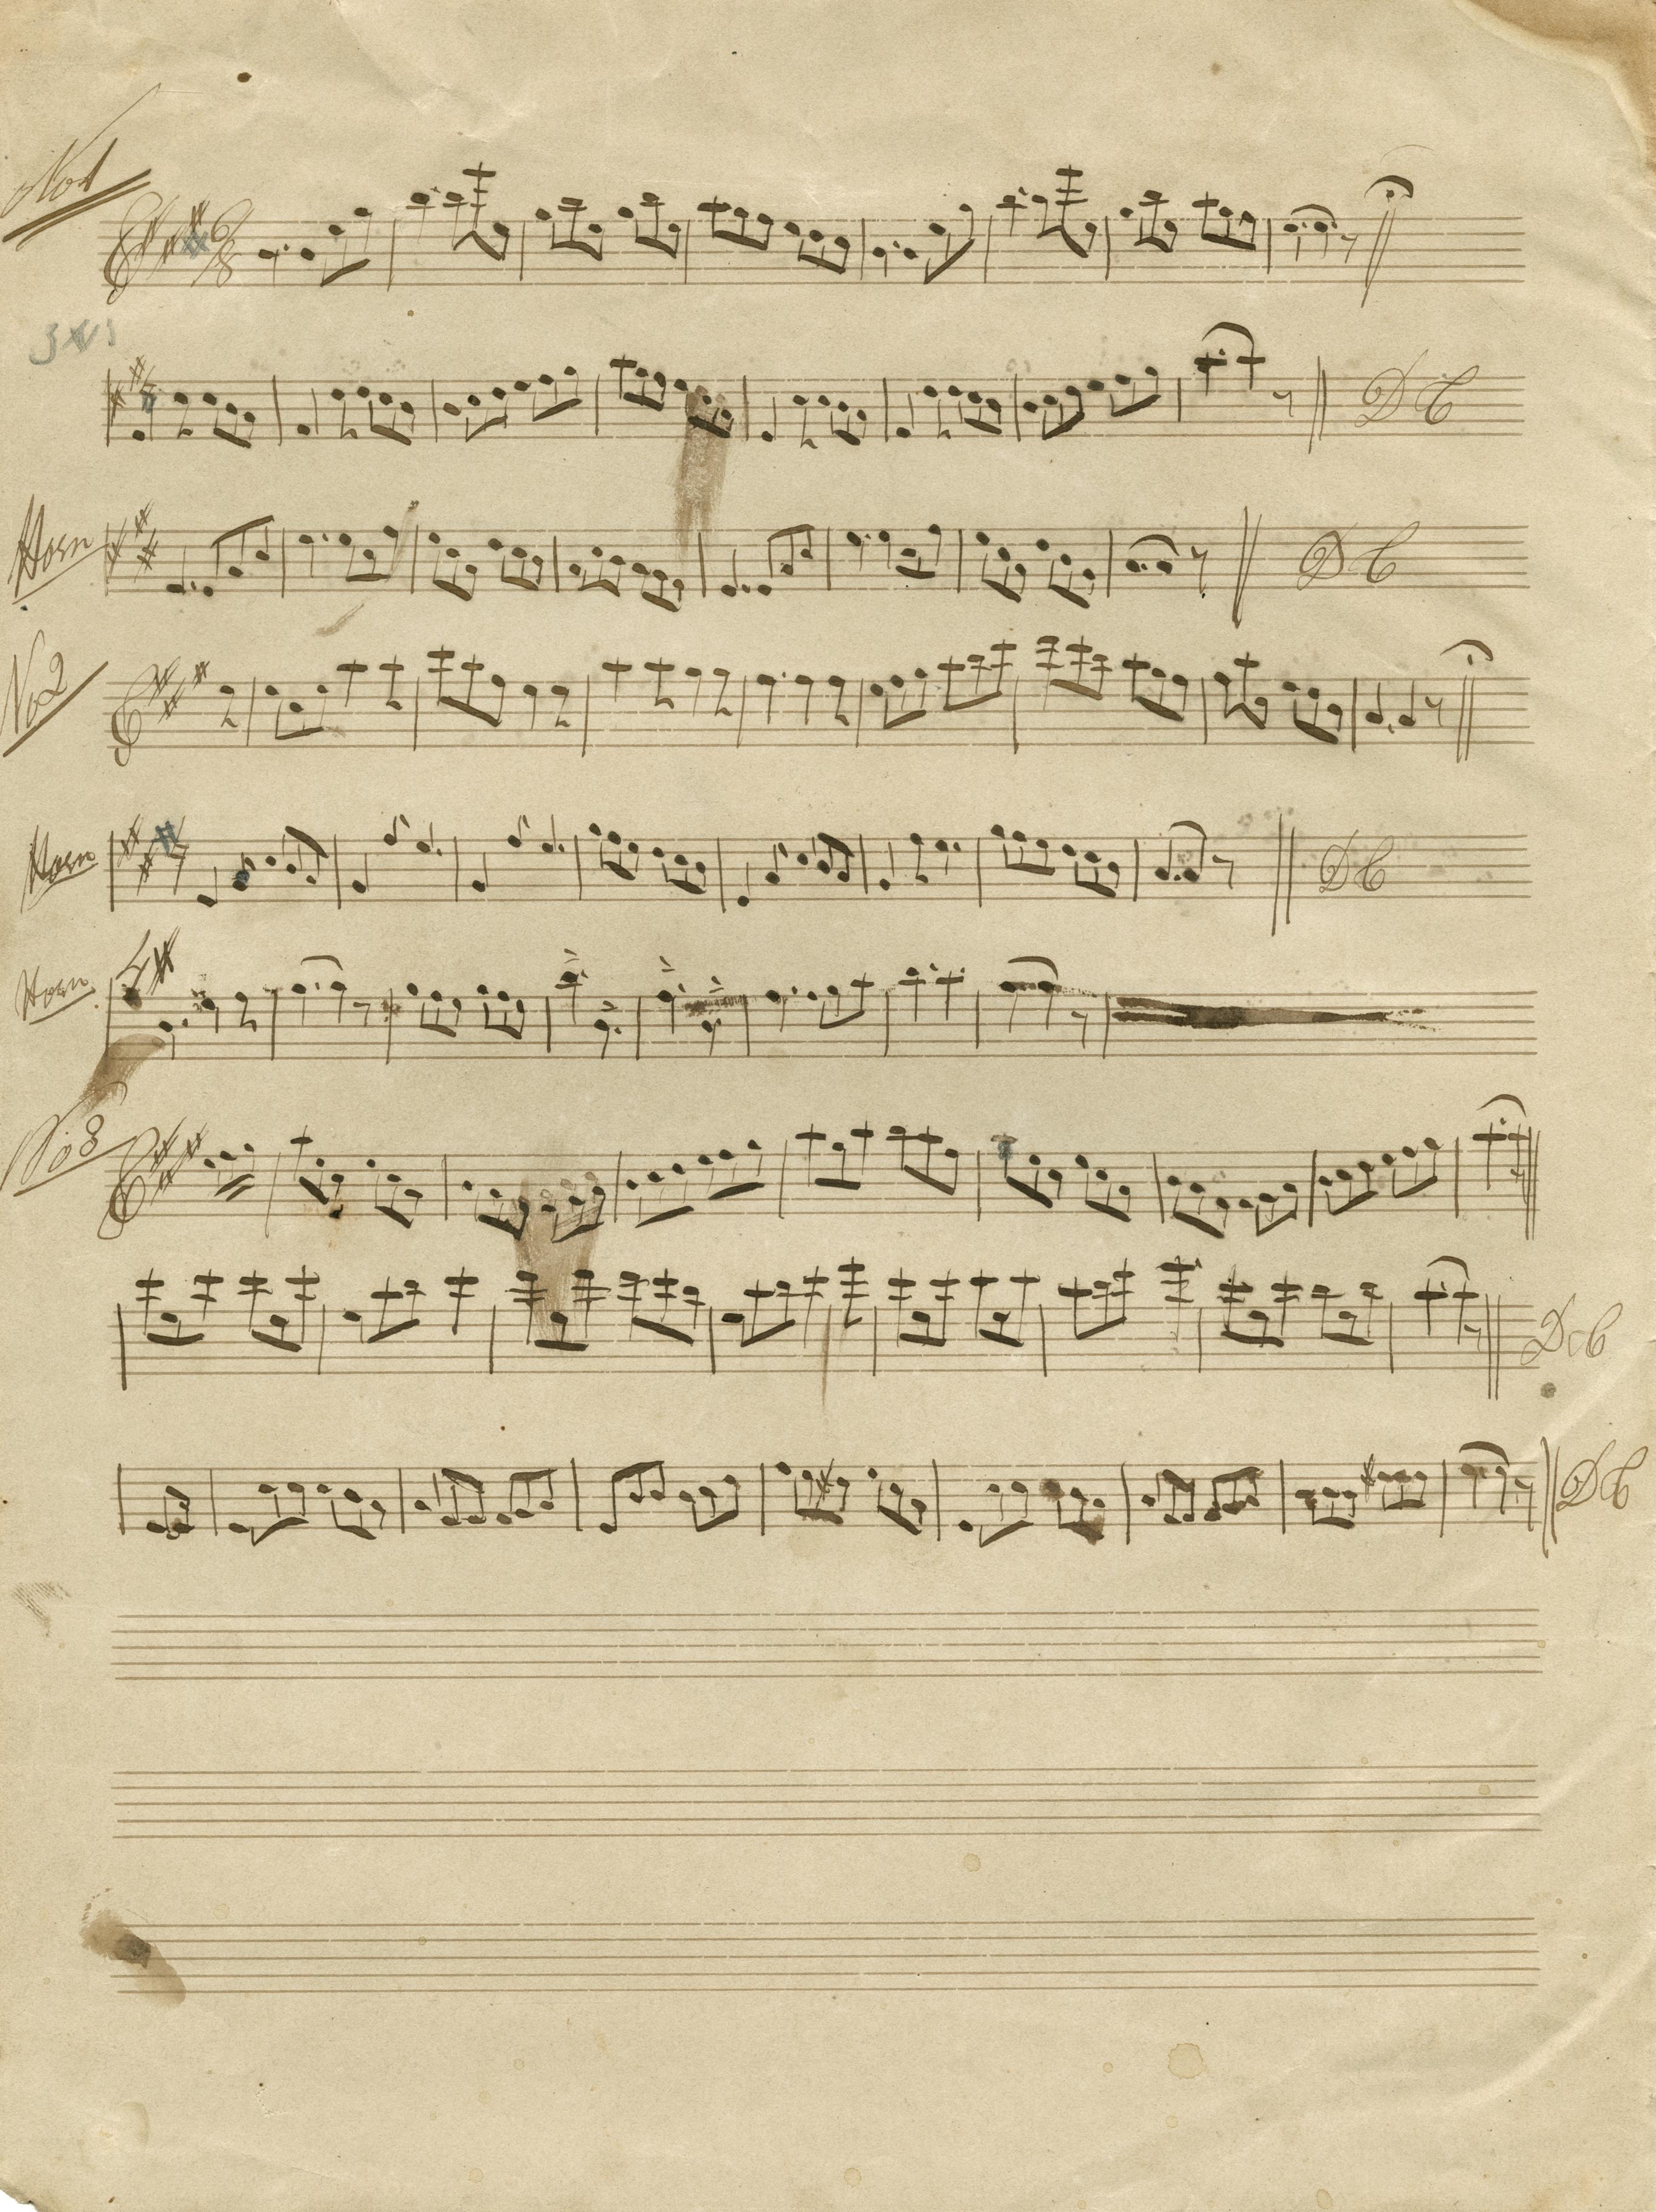 No 1
6/8
D C
Horn
D C
No 2
Horn
D C
Horn
No 3
D C
D C